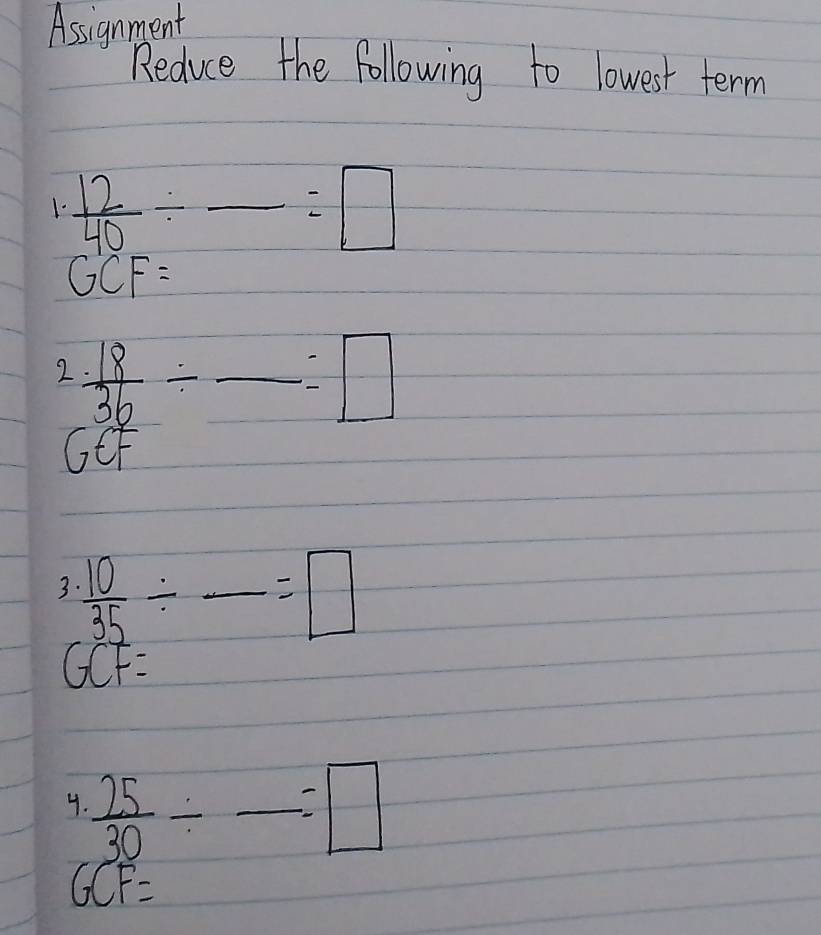 Assignment
Reduce the following to lowest term
1. 12/40 ÷ — = □
GCF=
2. 18/36 ÷ — = □
GCF
3. 10/35 ÷ — = □
GCF=
4. 25/30 ÷ — = □
GCF=